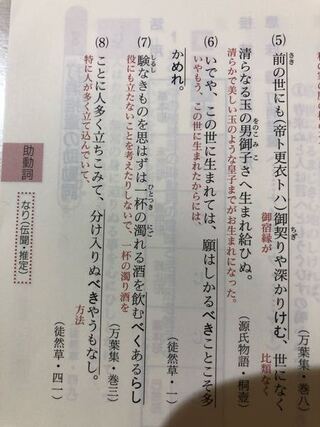 (万葉集・巻八)
(5) 前の世にも(帝ト更衣トハ)御契りや深かりけむ、世になく
さき
ちぎ
御宿縁が
比類なく
清らなる玉の男御子さへ生まれ給ひぬ。
をのこみこ
(源氏物語・桐壺)
清らかで美しい玉のような皇子までがお生まれになった。
(6) いでや、この世に生まれては、願はしかるべきことこそ多
いやもう、この世に生まれたからには、
かめれ。
(徒然草・一)
(7) 験なきものを思はずは一杯の濁れる酒を飲むべくあるらし
しるし
ひとつき
にご
役にも立たないことを考えたりしないで、一杯の濁り酒を
(万葉集・巻三)
(8) ことに人多く立ちこみて、分け入りぬべきやうもなし。
特に人が多く立て込んでいて、
方法
(徒然草・四一)
助動詞
なり(伝聞・推定)